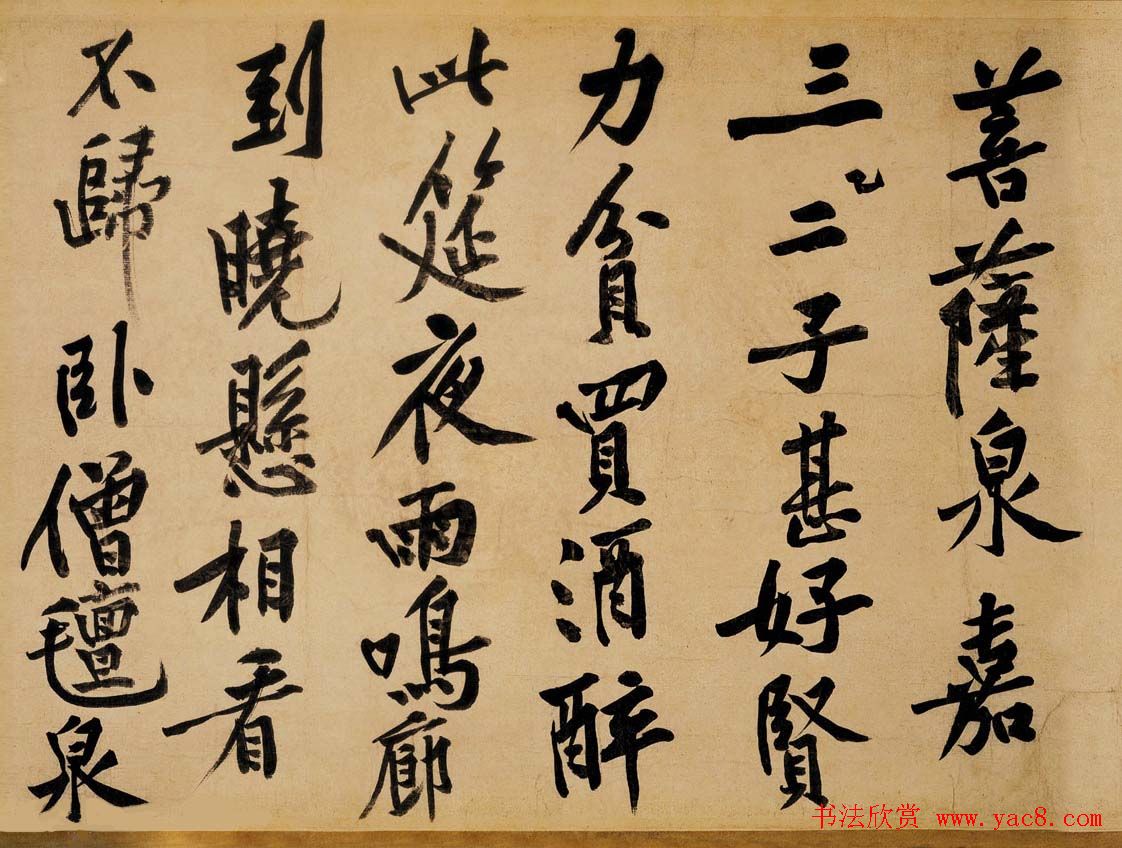 菩薩泉嘉
三二子甚好賢
力貧買酒醉
此筵夜雨鳴廊
到曉懸相看
不歸卧僧氈泉
书法欣赏 www.yac8.com